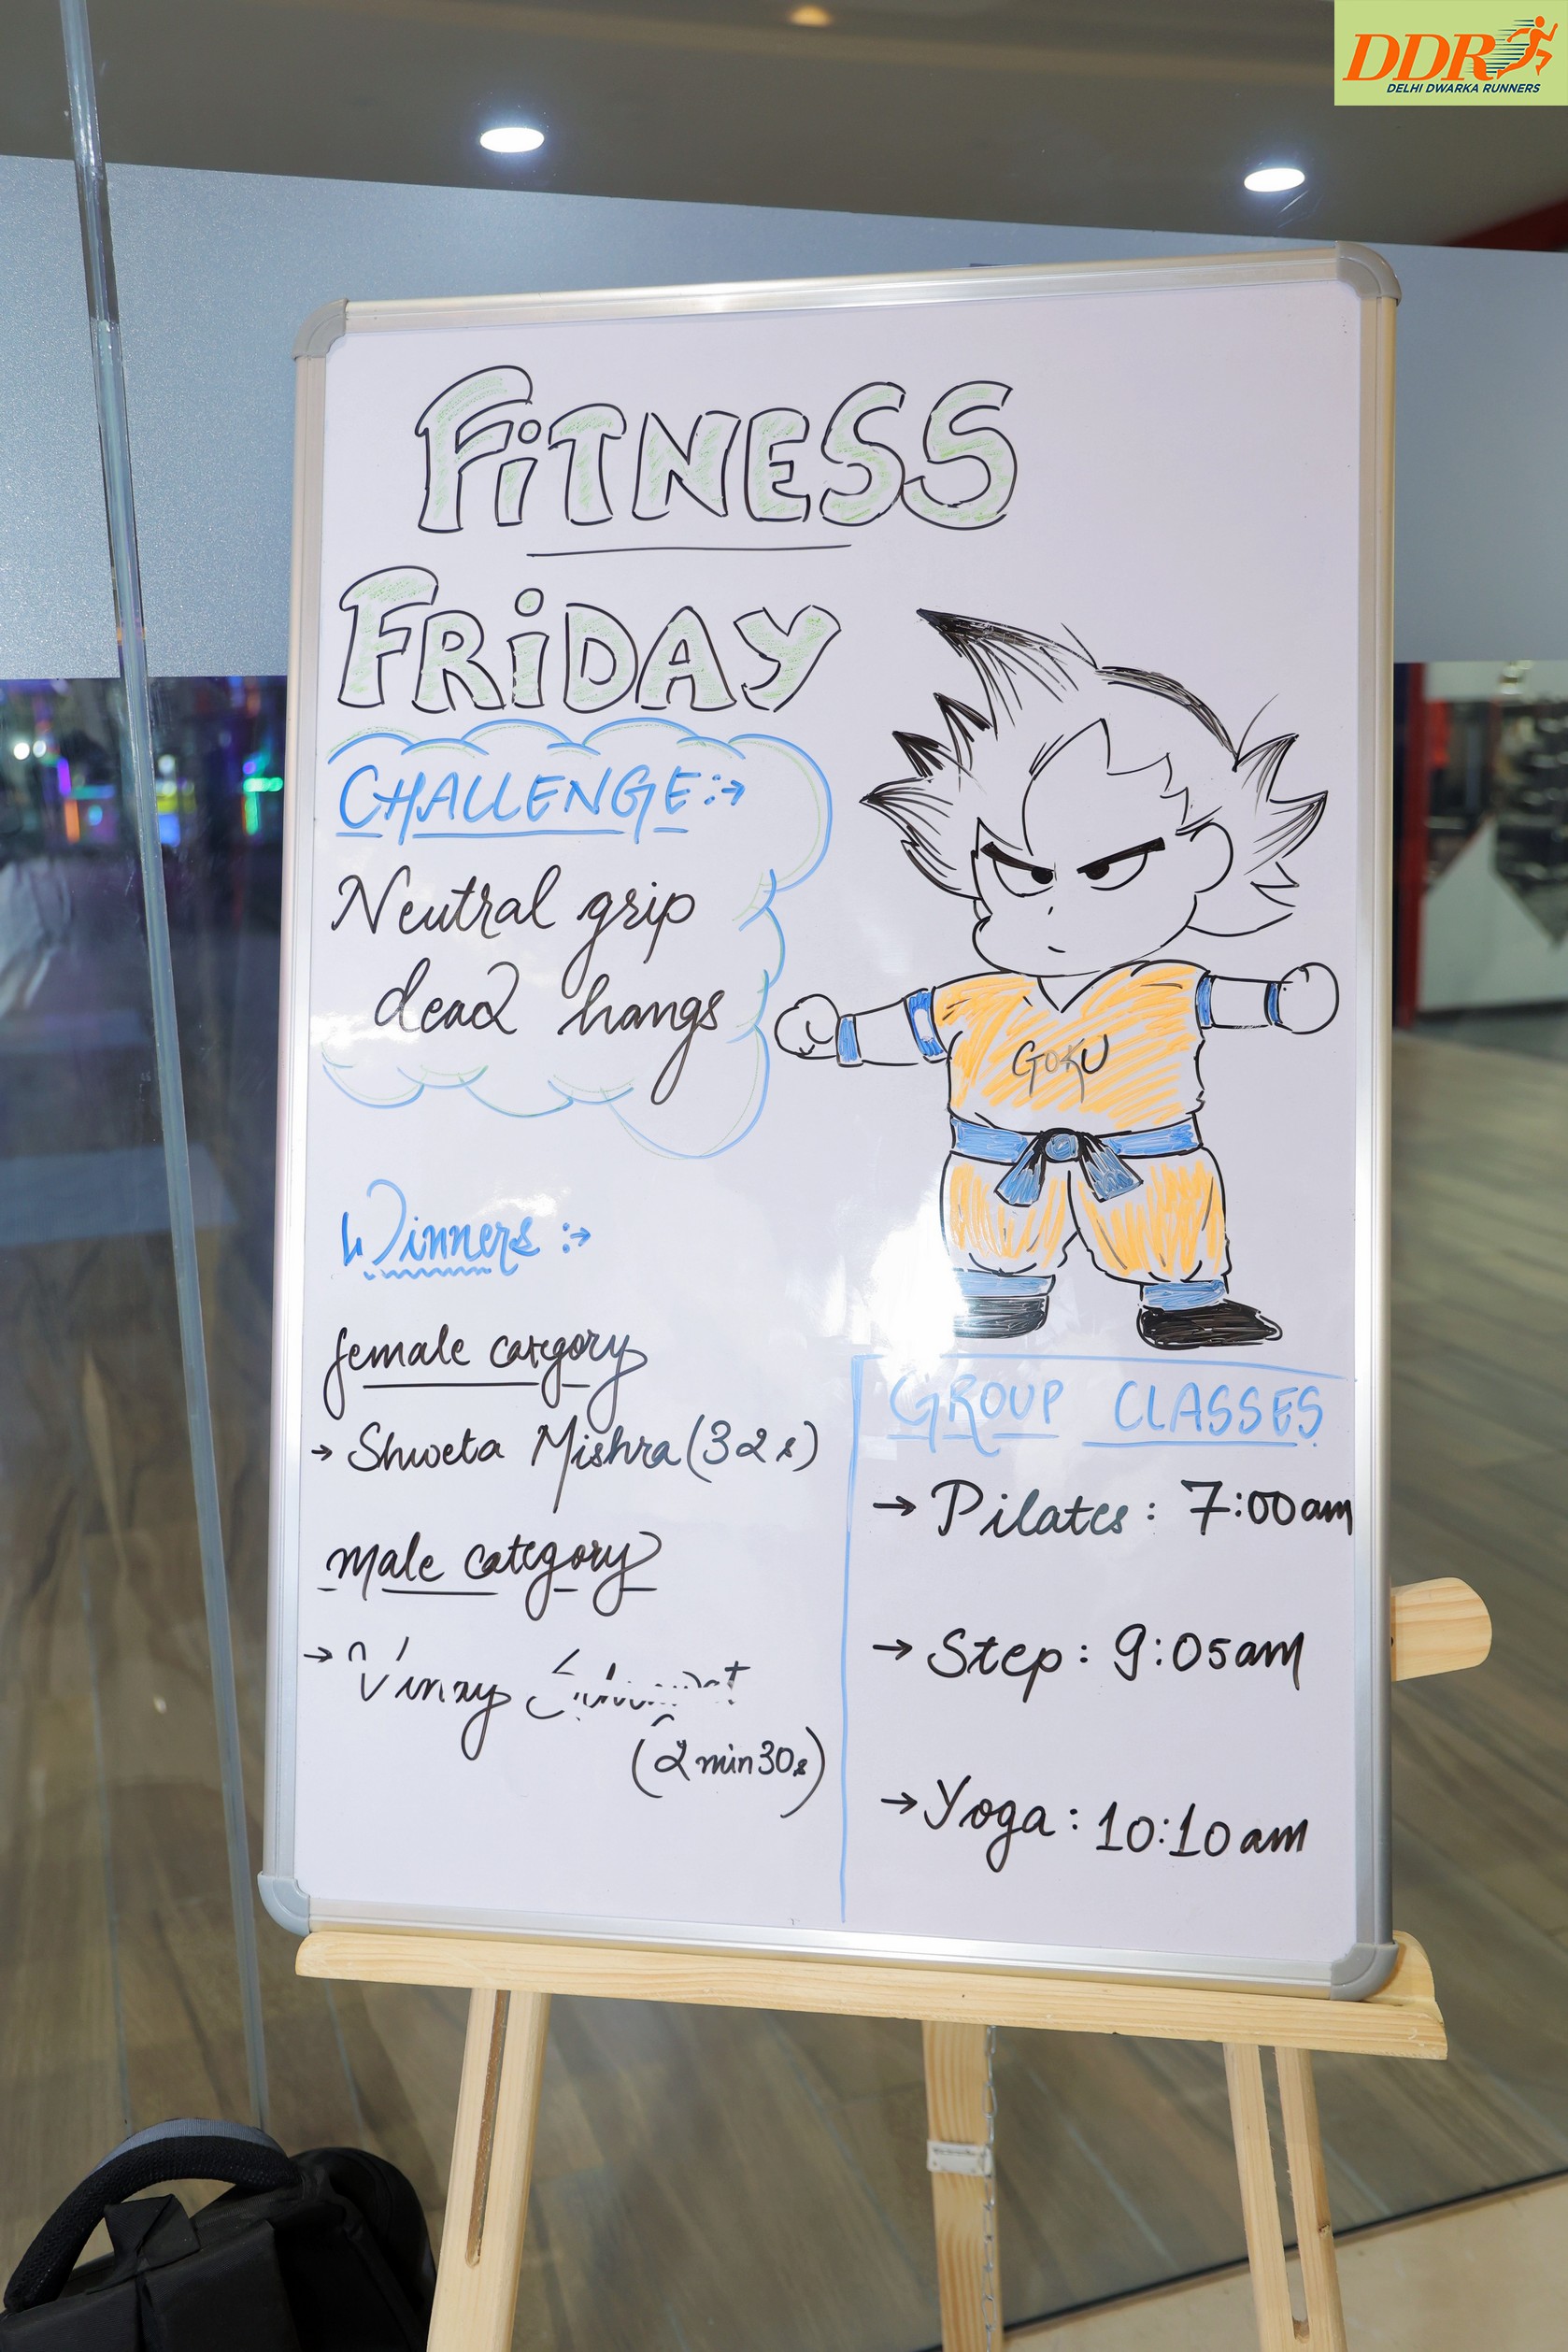 DDR
DELHI DWARKA RUNNERS
FiTNESS
FRiDAY
CHALLENGE:→
Neutral grip
dead hangs
GOKU
Winners :→
female category
→ Shweta Mishra (32s)
Male category
→ Vinay
(2 min 30s)
GROUP CLASSES
→ Pilates: 7:00am
→ Step: 9:05am
→ Yoga: 10:10am